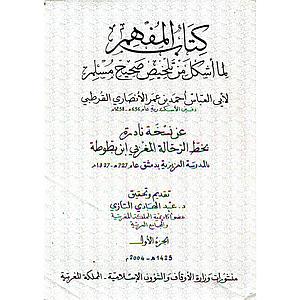 كتاب المفهم
لما أشكل من تلخيص صحيح مسلم
لأبي العباس أحمد بن عمر الأنصاري القرطبي
عن نسخة نادرة
بخط الرحالة المغربي ابن بطوطة
بالمدرسة العزيزية بدمشق عام 727هـ-1327م
تقديم وتحقيق
د. عبد الهادي التازي
عضو أكاديمية المملكة المغربية
والمجامع العربية
الجزء الأول
1425هـ - 2004م
منشورات وزارة الأوقاف والشؤون الإسلامية - المملكة المغربية